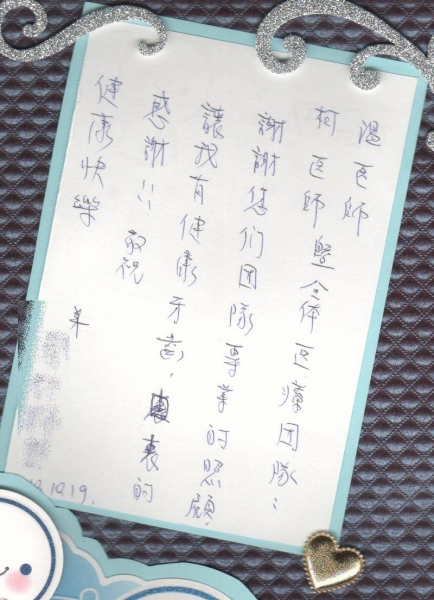 温医师
柯医师暨全体医療团隊:
謝謝您们团隊專業的照顧,
讓我有健康牙齿,衷的
感謝!! 敬祝
健康快樂
10.19.